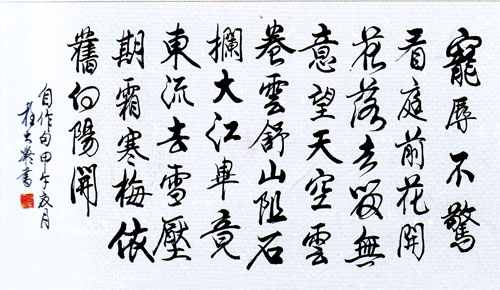 寵辱不驚
看庭前花開
花落去留無
意望天空雲
卷雲舒山阻石
攔大江畢竟
東流去雪壓
期霜寒梅依
舊向陽開
自作句甲午夏月
書